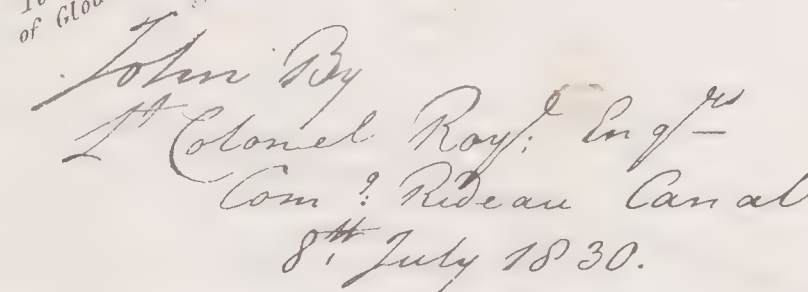 of Glou
John By
Lt Colonel Royl: Engrs
Comg: Rideau Canal
8th July 1830.